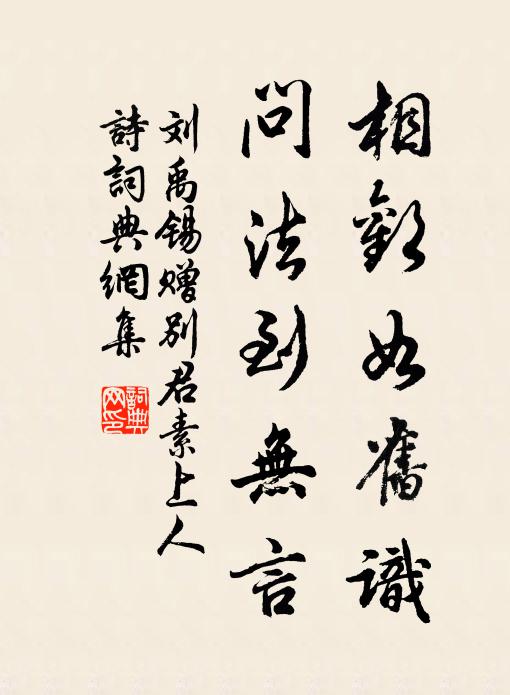 相歡如舊識
問法到無言
刘禹锡赠别君素上人
詩詞典網集
詞典
网印